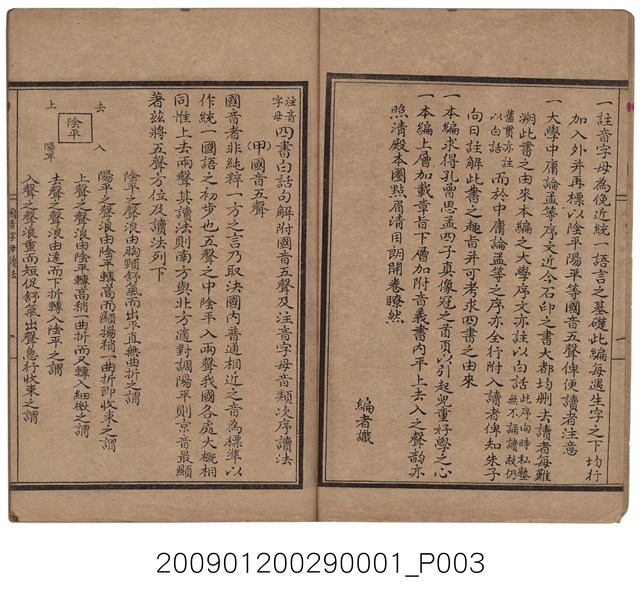 一註音字母為俛近統一語言之基礎此編每遇生字之下均行
加入外并再標以陰平陽平等國音五聲俾便讀者注意
一大學中庸論孟等序文近今石印之書大都均刪去讀者每難
溯此書之由來本編之大學序文亦註以白話此序向時私塾無不誦讀故仍
舊貫亦註以白話而於中庸論孟等之序亦全行附入讀者俾知朱子
向日註解此書之趣旨并可考求四書之由來
一本編求得孔曾思孟四子真像冠之首頁以引起兒童好學之心
一本編上層加載章旨下層加附音義書內平上去入之聲韵亦
照清殿本圈點眉清目朗開卷瞭然
編者識
注音字母四書白話句解附國音五聲及注音字母音類次序讀法
(甲)國音五聲
國音者非純粹一方之言乃取決國內普通相近之音為標準以
作統一國語之初步也五聲之中陰平入兩聲我國各處大概相
同惟上去兩聲其讀法則南方與北方適對調陽平則京音最顯
著茲將五聲方位及讀法列下
陰平之聲浪由胸頸舒氣而出平直無曲折之謂
陽平之聲浪由陰平轉高而顯揚稍一曲折即收束之謂
上聲之聲浪由陰平轉高稍一曲折而又轉入細微之謂
去聲之聲浪由遠而下折轉入陰平之謂
入聲之聲浪重而短促舒氣出聲急行收束之謂
去 入
陰平
上 陽平
200901200290001_P003